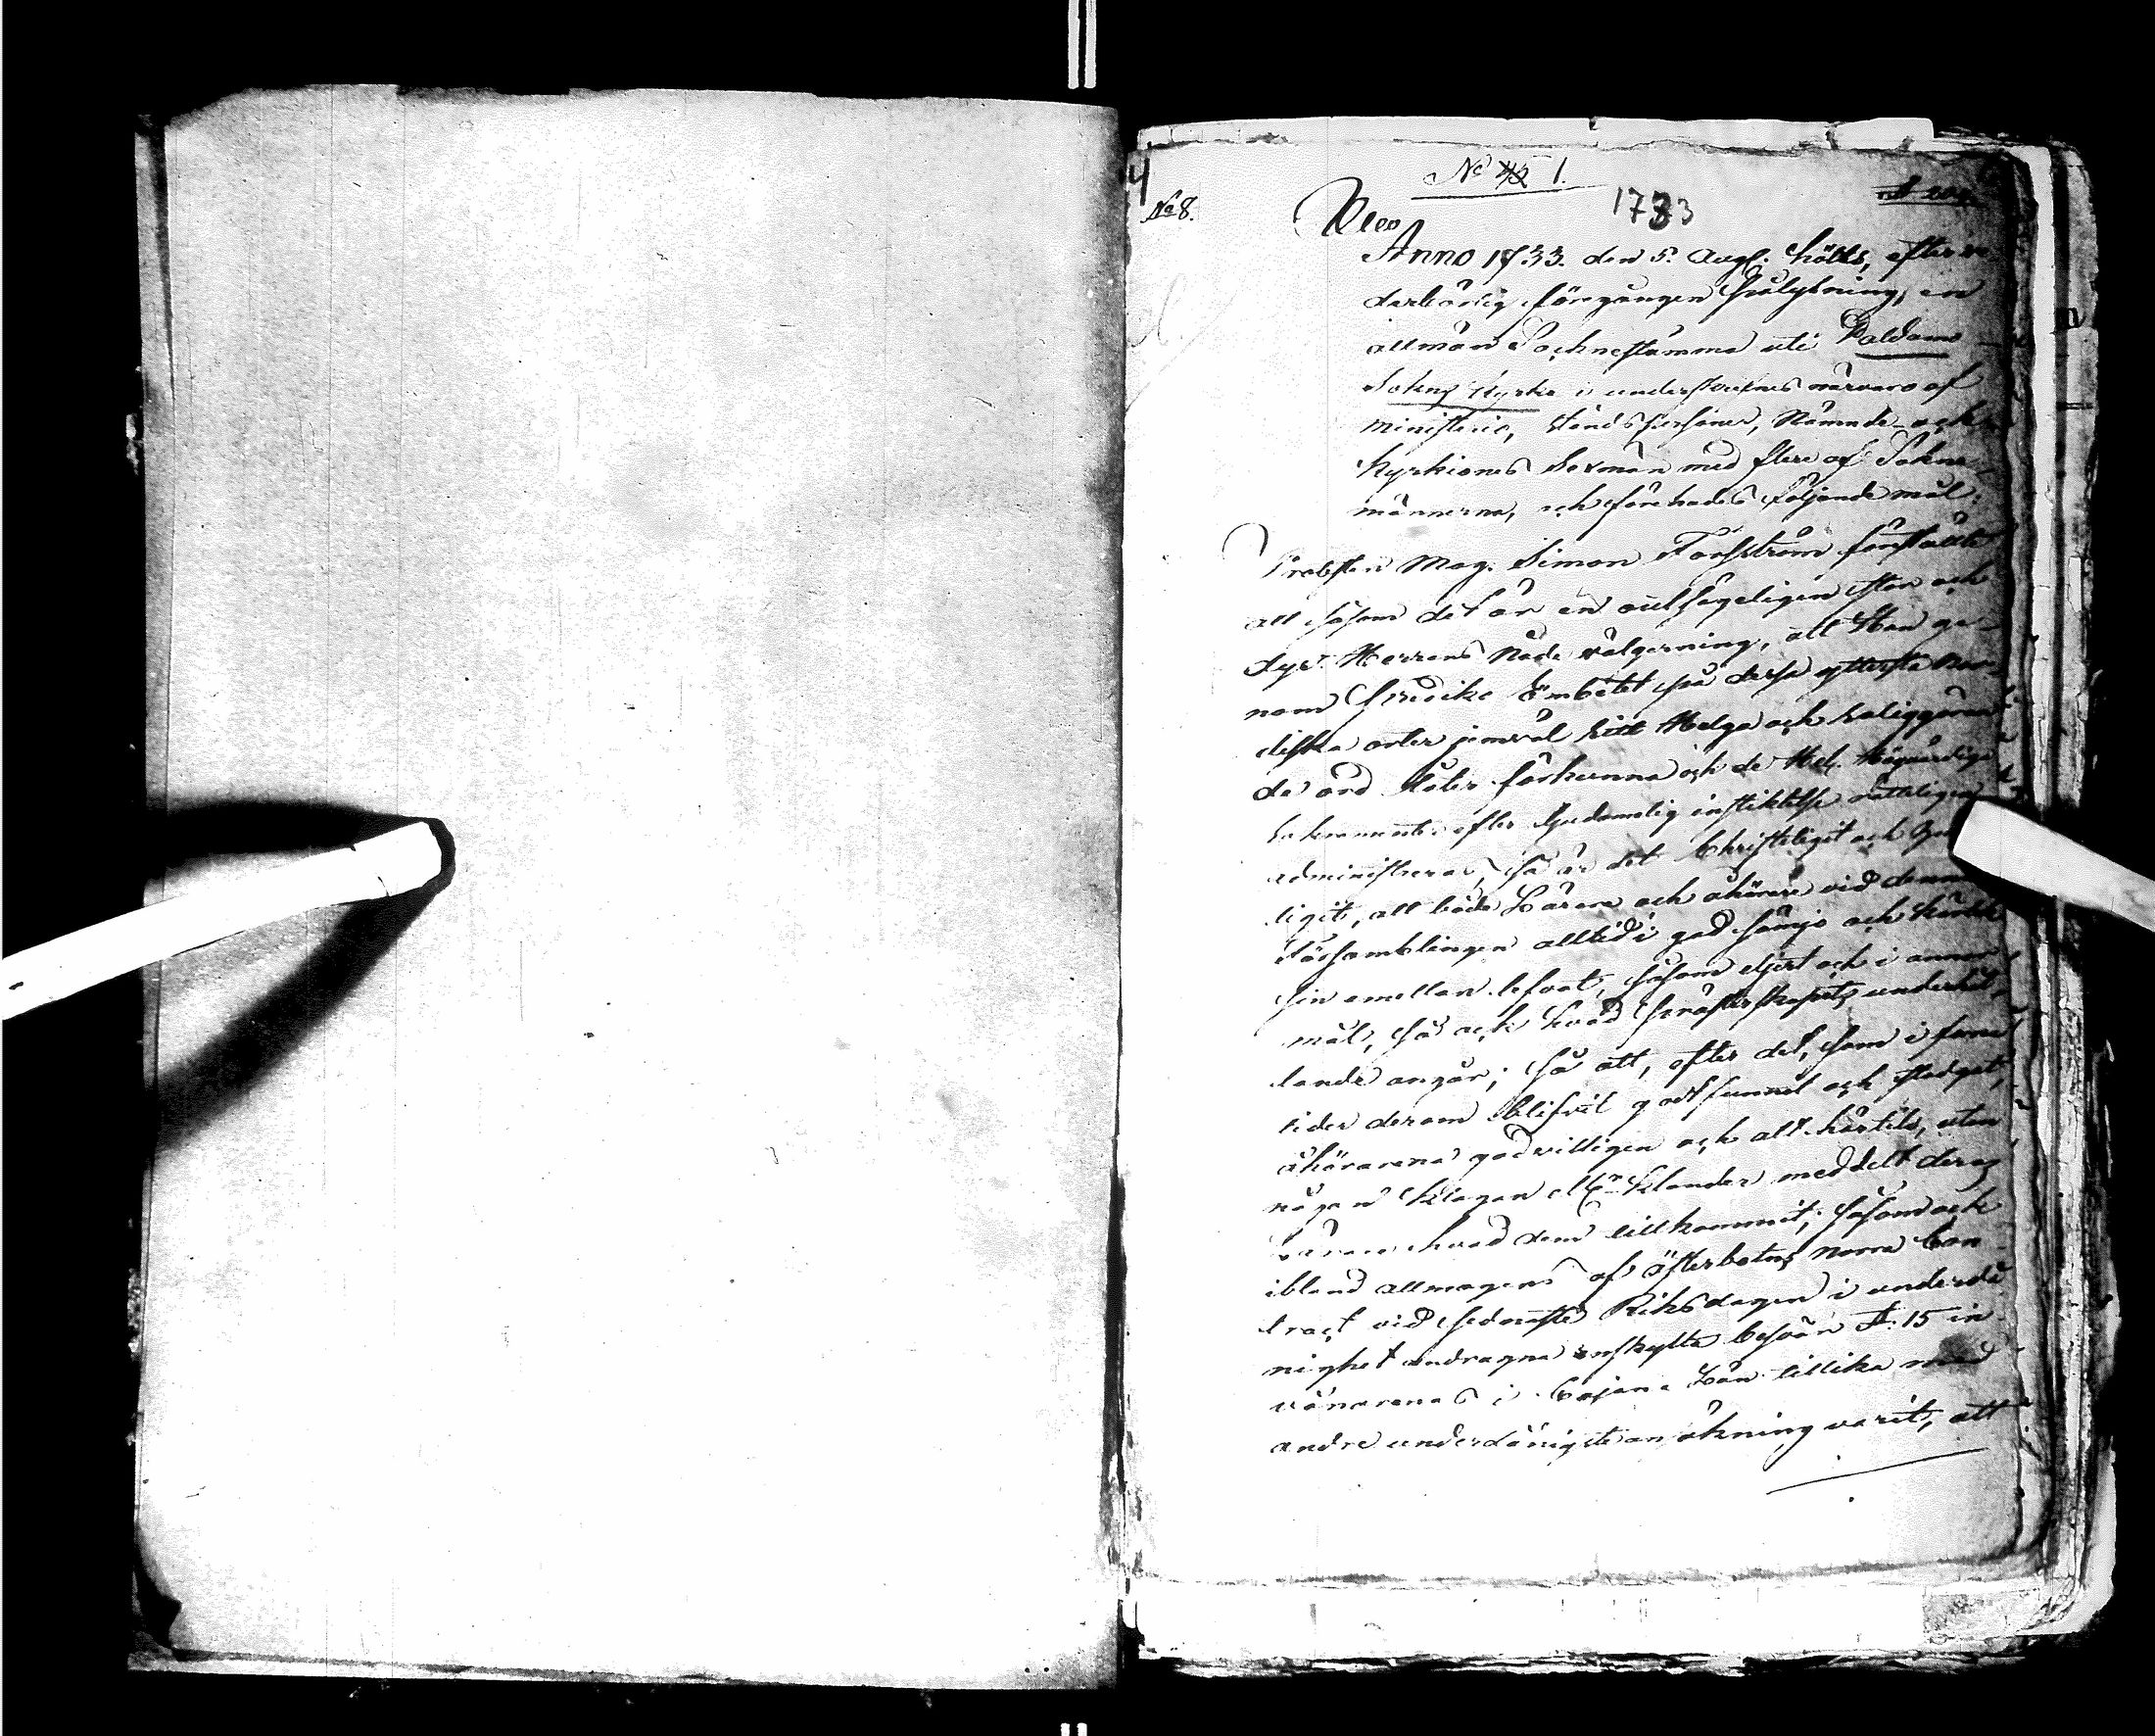 No 1.
No 8.
1733
Anno 1733. den 5. Aug. hölts, efter ve
derbörlig föregången pålysning, en
allmän Socknestämma uti Paldamo
Sokns Kyrka i underskrefnes närvaro af
ministerio, Ståndspersoner, Nämnde- och
Kyrkiones Sexmän med flere af Sokne
männerna, och förehades följande mål:
Probsten Mag. Simon Forsström förestälte
att såsom det är en outsäyeligen stor och
dyr Herrans Nåde välgerning, att Han ge-
nom Predike Embetet på dessa yttersta Nor-
diska orter jemväl sitt Helga och saliggöran
de ord låter förkunna och de Hel. Högvärdige
Sakramenter efter Gudomelig instiktelse rätteligen
administreras, så är det Christeligit och Gu
ligit, att både Lärare och åhörare vid denna
Församblingen alltid i god sämjo och kärlek
sin emellan lefvat, såsom eljest och i annor
mål, så ock hvad Presterskapetz underhål
lande angår; så att, efter det, som i forna
tider derom blifvit godtfunnit och stadgat,
åhörarena godvilligen och allt härtils, utan
någon klagan ell:r klander meddelt deras
Lärare hvad dem tillkommit; såsom och
ibland allmogens af Österbotns Norra Con
tract vid sednaste Riksdagen i underdå
nighet andragne enskylte besvär A: 15 in
vånarenas i Cajana Län tillika med
andre underdånigste ansökning varit, att